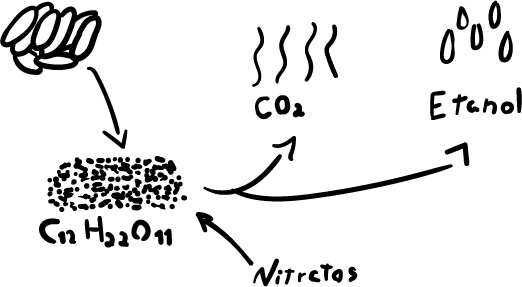 CO₂
Etanol
C₁₂H₂₂O₁₁
Nitratos